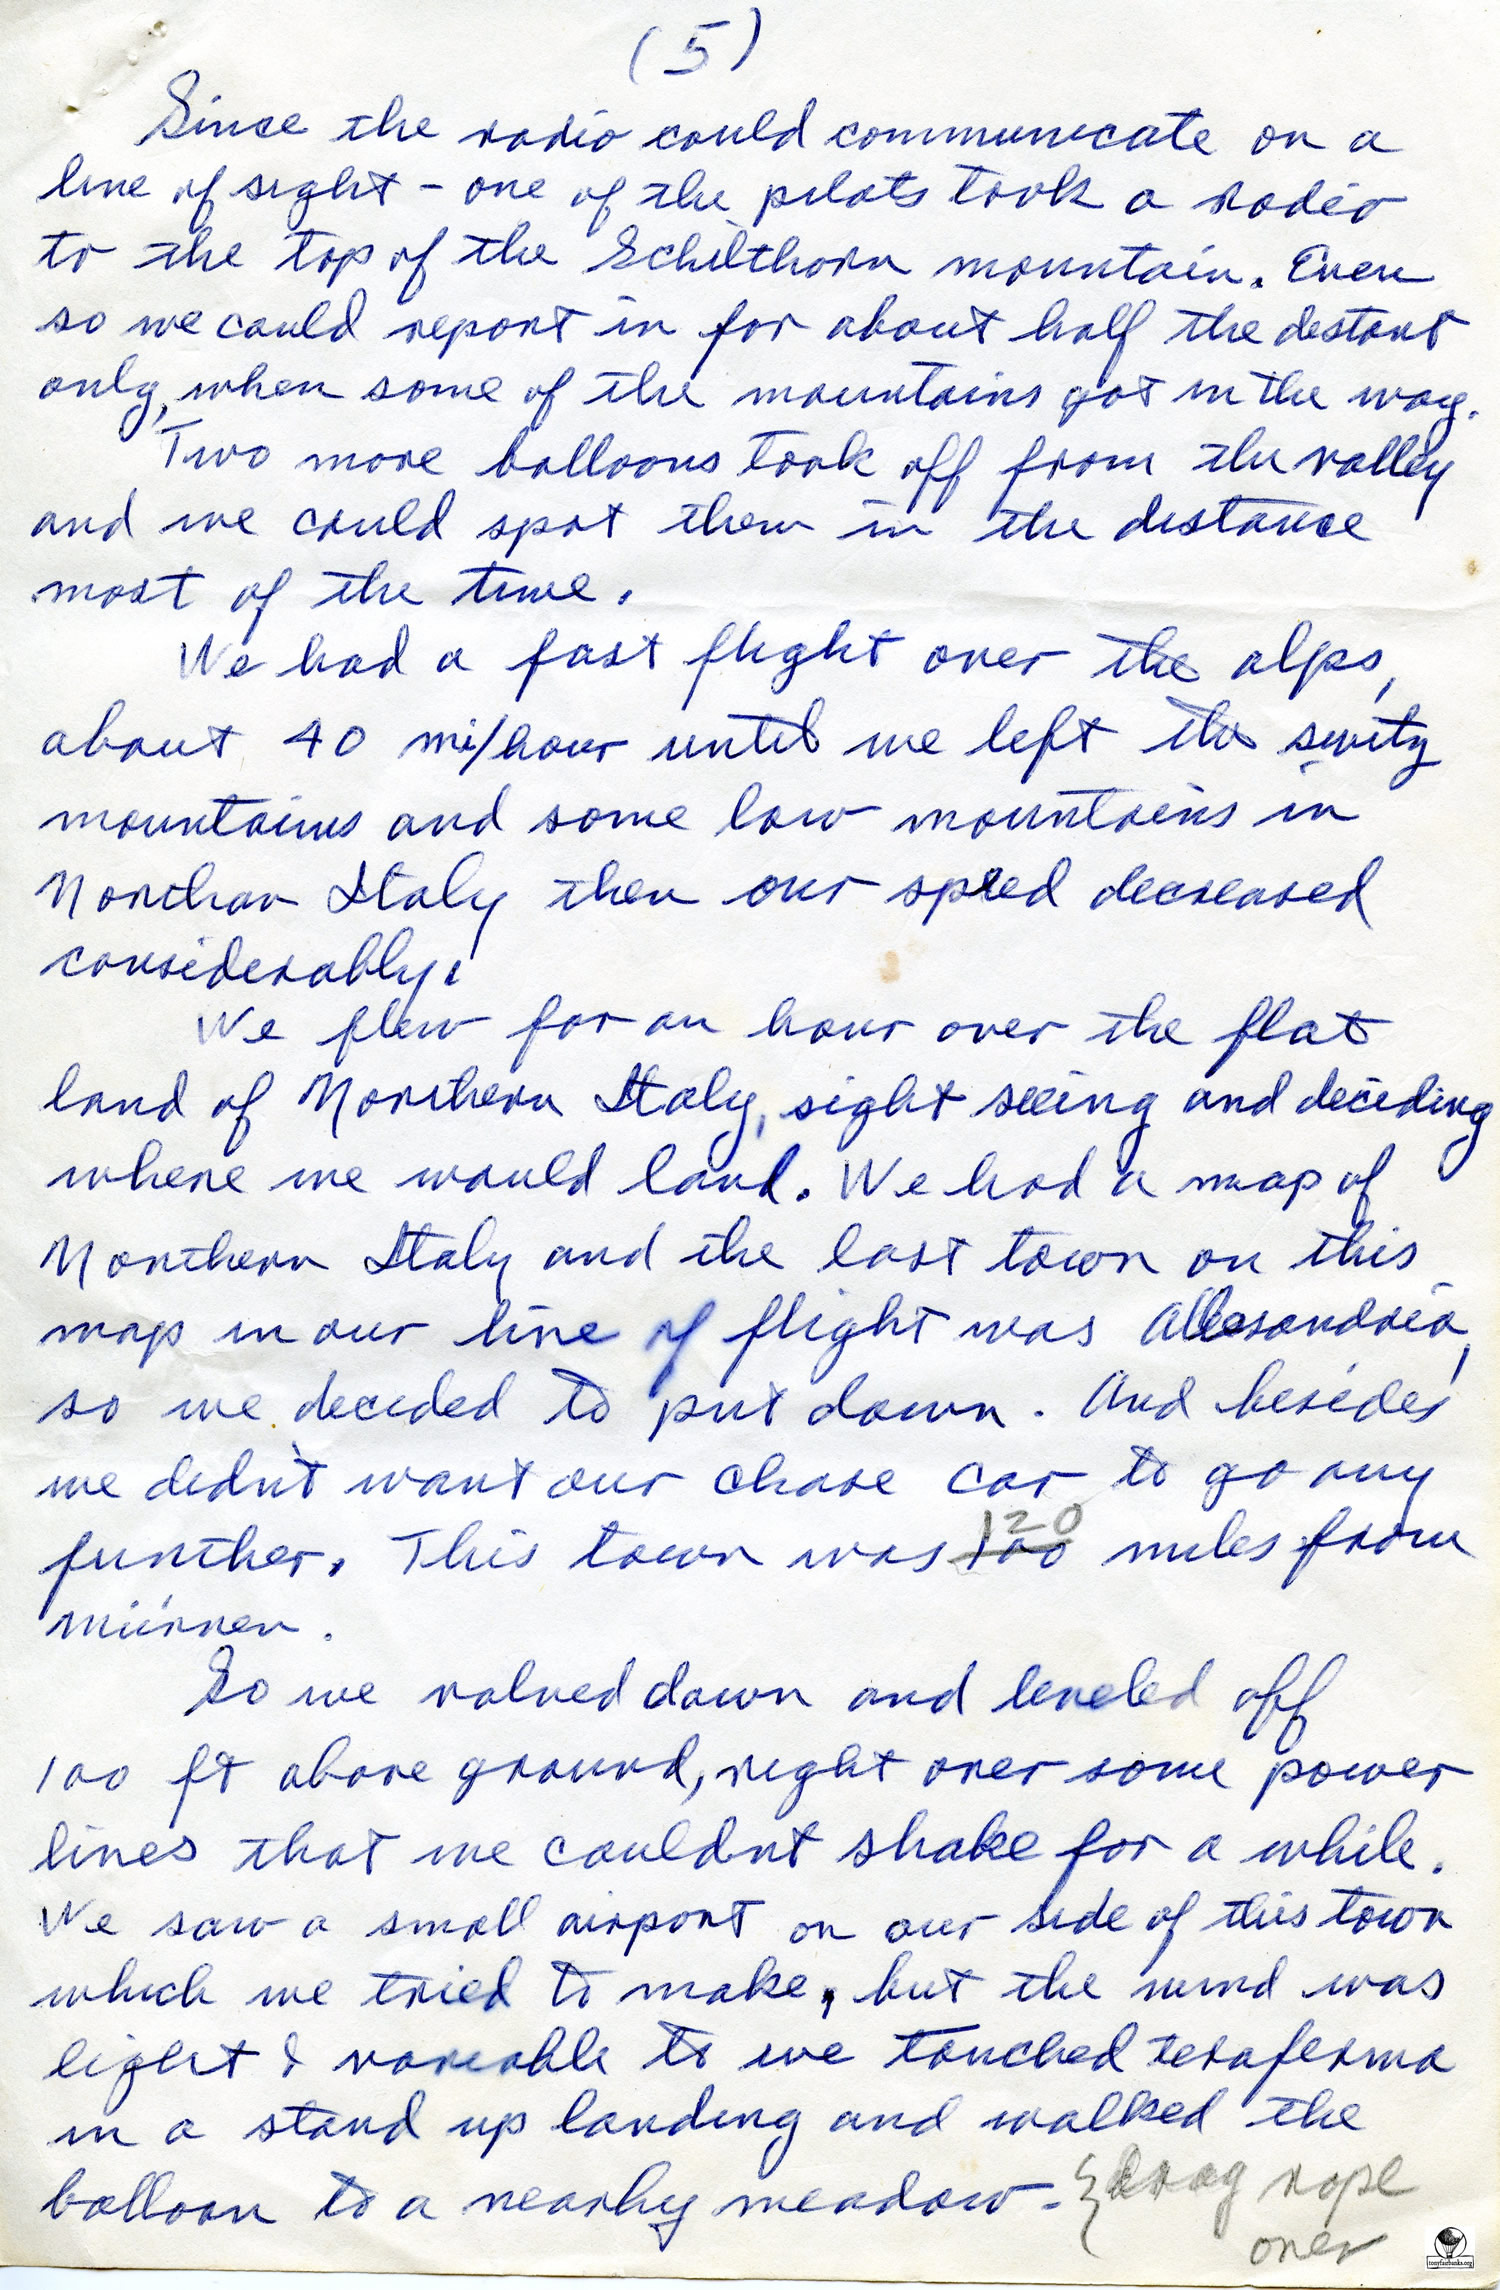 (5)
Since the radio could communicate on a
line of sight - one of the pilots took a radio
to the top of the Schilthorn mountain. Even
so we could report in for about half the distant
only, when some of the mountains got in the way.
Two more balloons took off from the valley
and we could spot them in the distance
most of the time.
We had a fast flight over the alps,
about 40 mi/hour until we left the
mountains and some low mountains in
Northan Italy then our speed decreased
considerably.
We flew for an hour over the flat
land of Northern Italy, sight seeing and deciding
where we would land. We had a map of
Northern Italy and the last town on this
map in our line of flight was Allesandria,
so we decided to put down. And besides
we didn't want our chase car to go any
further. This town was 100 120 miles from
Mürren.
So we valved down and leveled off
100 ft above ground, right over some power
lines that we couldnt shake for a while.
We saw a small airport on our side of this town
which we tried to make, but the wind was
light & variable to we touched teraferma
in a stand up landing and walked the
balloon to a nearby meadow - {drag rope
over
tonyfairbanks.org